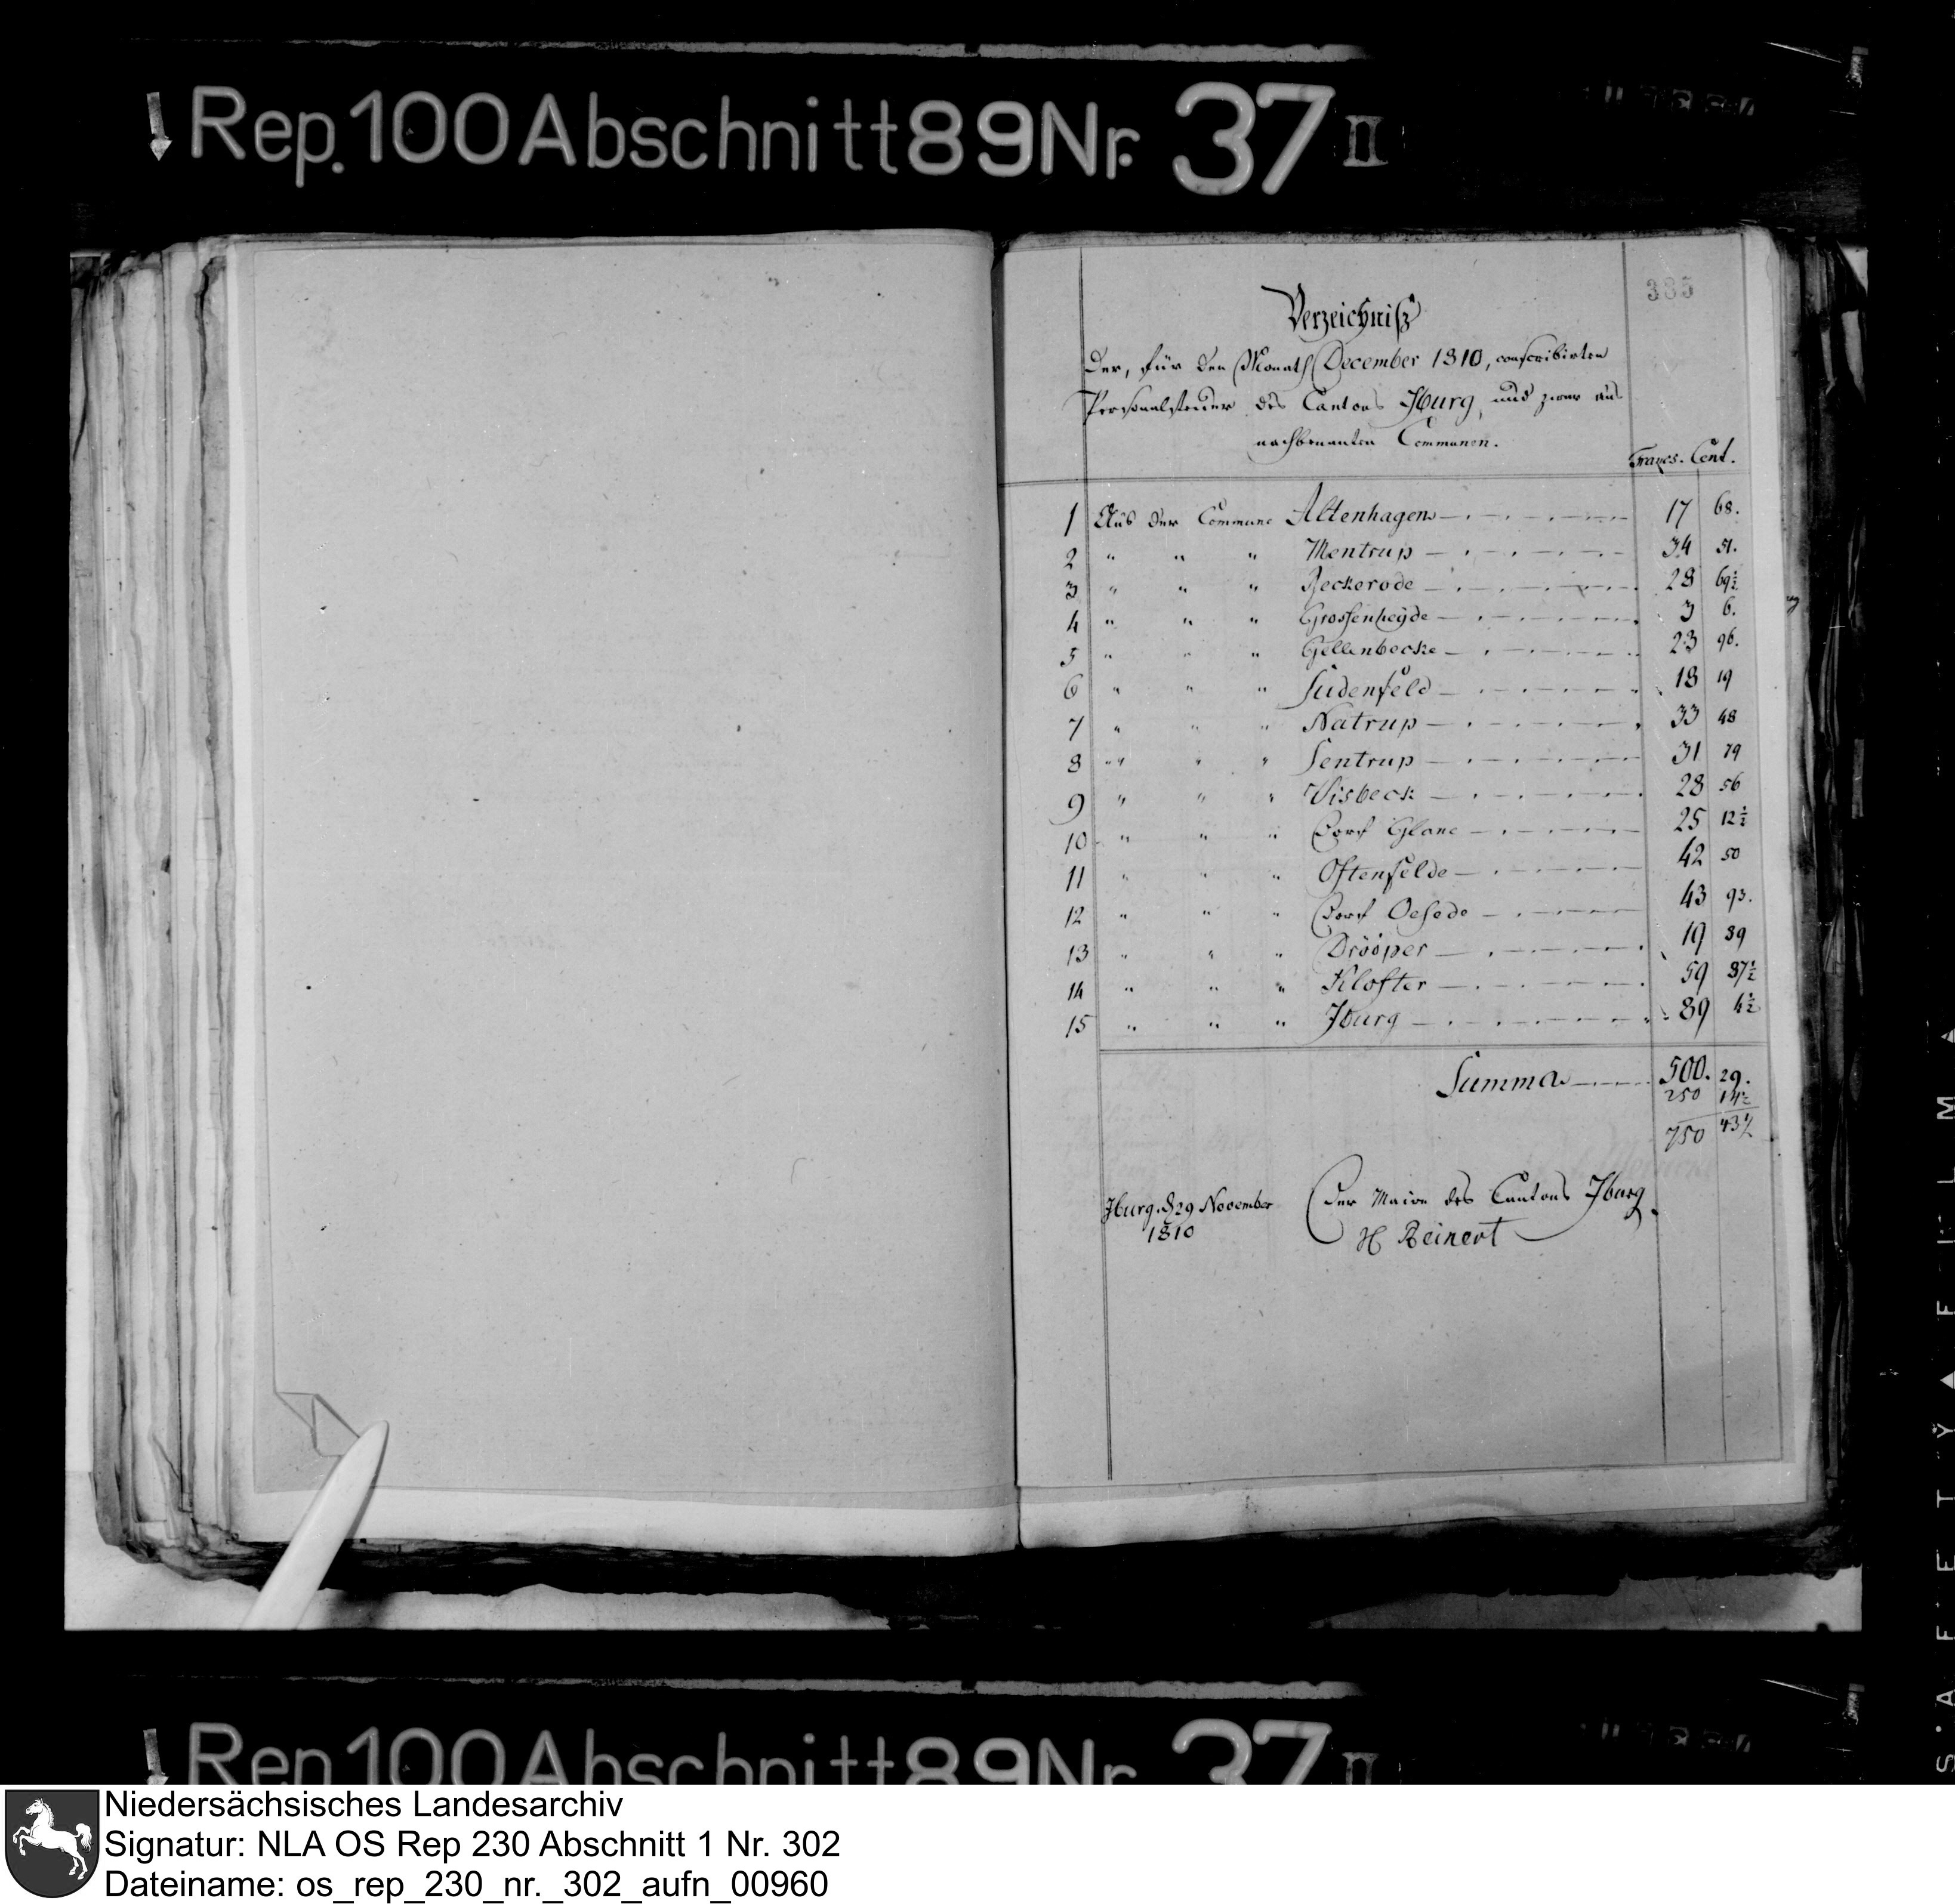 Rep. 100 Abschnitt 89 Nr. 37 II
385
Verzeichniß
Der, für den Monath December 1810, conscribirten
Personalsteuer des Cantons Iburg, und zwar aus
nachbenanten Communen.
Francs. Cent.
1 Aus der Commune Altenhagen 17 68.
2 " " " Mentrup 34 51.
3 " " " Beckerode 28 69½
4 " " " Grossenheyde 3 6.
5 " " " Gellenbecke 23 96.
6 " " " Sudenfeld 18 19
7 " " " Natrup 33 48
8 " " " Sentrup 31 79
9 " " " Visbeck 28 56
10 " " " Dorf Glane 25 12½
11 " " " Ostenfelde 42 50
12 " " " Dorf Oesede 43 93.
13 " " " Dröoper 19 39
14 " " " Kloster 59 37½
15 " " " Iburg 89 4½
Summa 500. 29.
250 14½
750 43½
Iburg, d 29 November
1810
Der Maire des Cantons Iburg.
H Reinert
Rep. 100 Abschnitt 89 Nr. 37 II
SAFETY FILM
Niedersächsisches Landesarchiv
Signatur: NLA OS Rep 230 Abschnitt 1 Nr. 302
Dateiname: os_rep_230_nr._302_aufn_00960